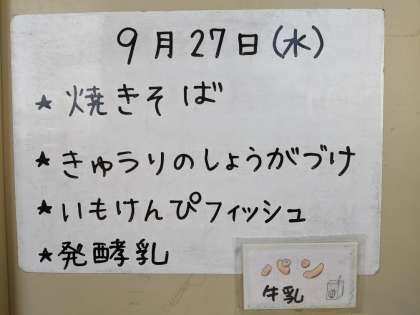 9月27日(水)
★焼きそば
★きゅうりのしょうがづけ
★いもけんぴフィッシュ
★発酵乳
パン
牛乳